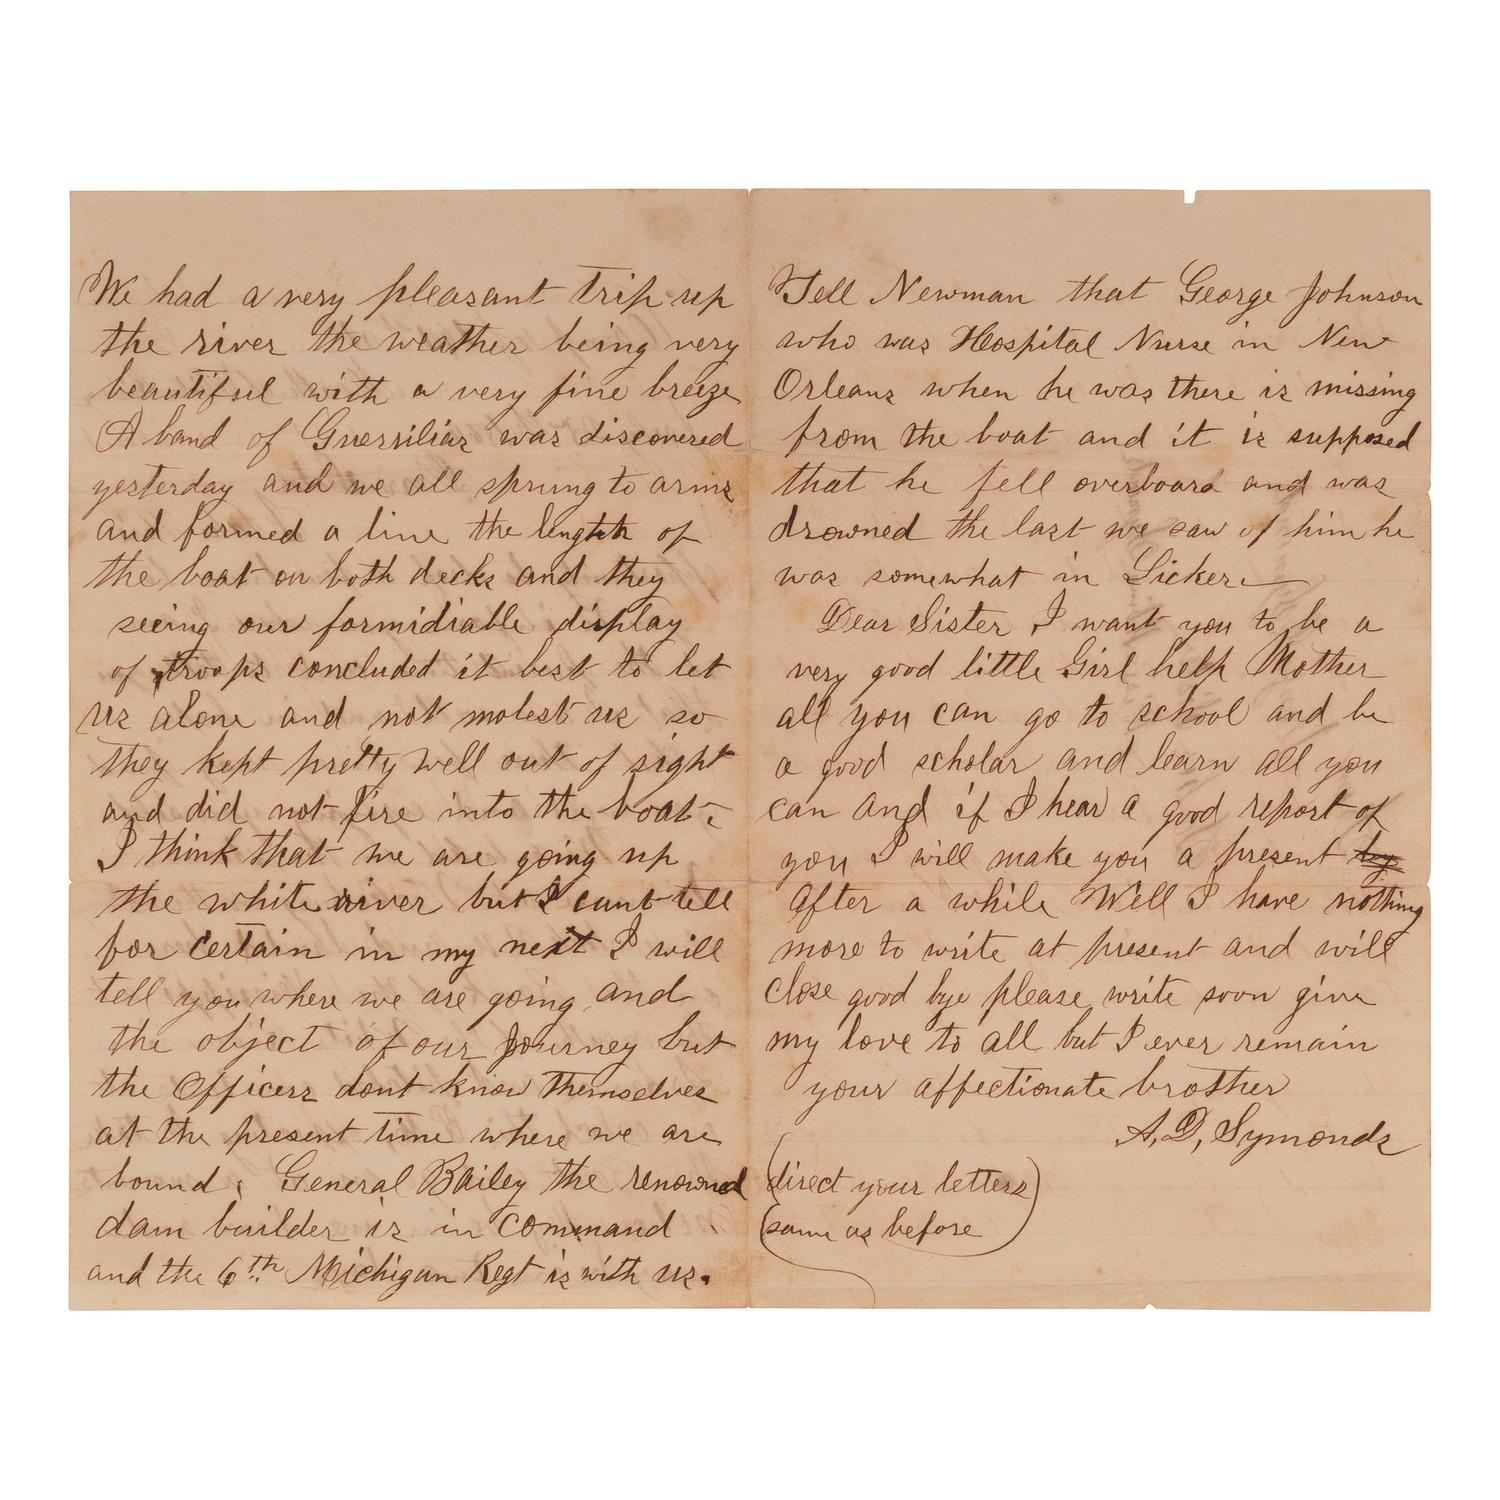 We had a very pleasant trip up
the river the weather being very
beautiful with a very fine breeze
A band of Guerrilias was discovered
yesterday and we all sprung to arms
and formed a line the lenghth of
the boat on both decks and they
seeing our formidiable display
of troops concluded it best to let
us alone and not molest us so
they kept pretty well out of sight
and did not fire into the boat.
I think that we are going up
the white river but I cant tell
for certain in my next I will
tell you where we are going and
the object of our Journey but
the Officers dont know themselves
at the present time where we are
bound. General Bailey the renowned
dam builder is in command
and the 6th Michigan Regt is with us.
Tell Newman that George Johnson
who was Hospital Nurse in New
Orleans when he was there is missing
from the boat and it is supposed
that he fell overboard and was
drowned the last we saw of him he
was somewhat in Licker
Dear Sister I want you to be a
very good little Girl help Mother
all you can go to school and be
a good scholar and learn all you
can and if I hear a good report of
you I will make you a present
after a while Well I have nothing
more to write at present and will
close good bye please write soon give
my love to all but I ever remain
your affectionate brother
A, D, Symonds
(direct your letters)
(same as before)